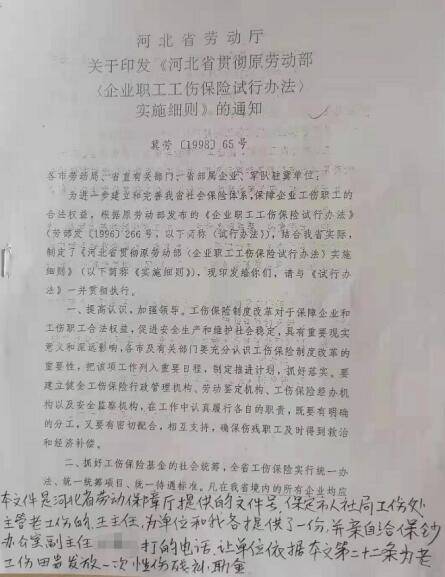 河北省劳动厅
关于印发《河北省贯彻原劳动部
〈企业职工工伤保险试行办法〉
实施细则》的通知
冀劳〔1998〕65号
各市劳动局、省直有关部门、省部属企业、军队驻冀单位:
为进一步建立和完善我省社会保险体系,保障企业工伤职工的
合法权益,根据原劳动部发布的《企业职工工伤保险试行办法》
(劳部发〔1996〕266号,以下简称《试行办法》),结合我省实际,
制定了《河北省贯彻原劳动部〈企业职工工伤保险试行办法〉实施
细则》(以下简称《实施细则》),现印发给你们,请与《试行办
法》一并贯彻执行。
一、提高认识,加强领导。工伤保险制度改革对于保障企业和
工伤职工合法权益,促进安全生产和维护社会稳定,具有重要现实
意义和深远影响,各市及有关部门要充分认识工伤保险制度改革的
重要性,把该项工作列入重要日程,制定推进计划,抓好落实。要
建立健全工伤保险行政管理机构、劳动鉴定机构、工伤保险经办机
构以及安全监察机构,在工作中认真履行各自的职责,既要有明确
的分工,又要有密切配合,相互支持,确保伤残职工及时得到救治
和经济补偿。
二、抓好工伤保险基金的社会统筹,全省工伤保险实行统一办
法、统一统筹项目、统一待遇标准。凡在我省境内的所有企业均应
本文件是河北省劳动保障厅提供的文件号,保定市人社局工伤处
主管老工伤的,王主任,为单位和我各提供了一份,并亲自给保钞
办公室副主任 打的电话,让单位依据本文第二十二条为老
工伤田世发放一次性伤残补助金